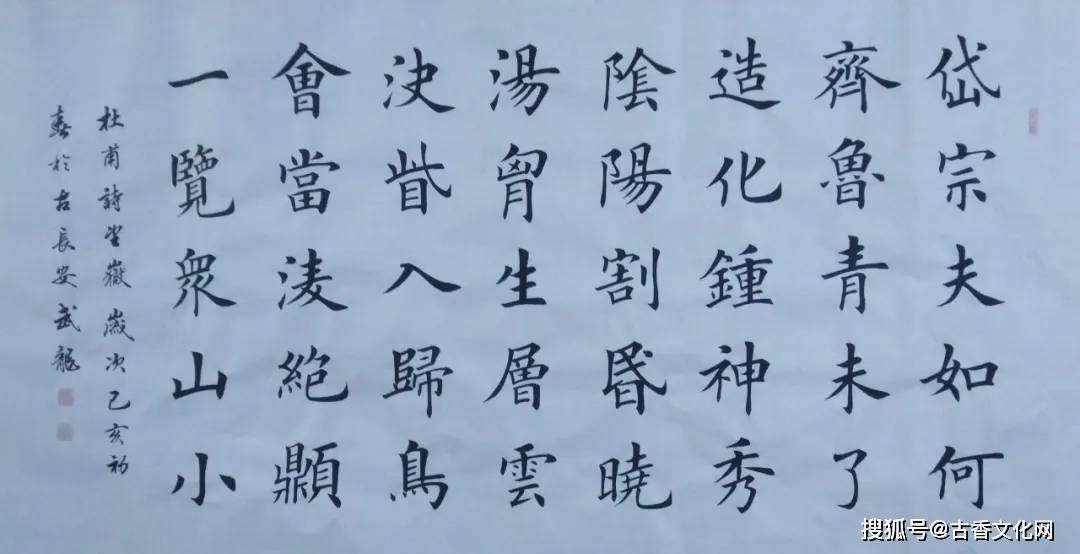 岱宗夫如何
齊魯青未了
造化鍾神秀
隂陽割昬曉
湯胷生層雲
決眥入歸鳥
會當淩絶顚
一覽衆山小
杜甫詩望嶽 歲次己亥初
春於古長安武龍
搜狐号@古香文化网